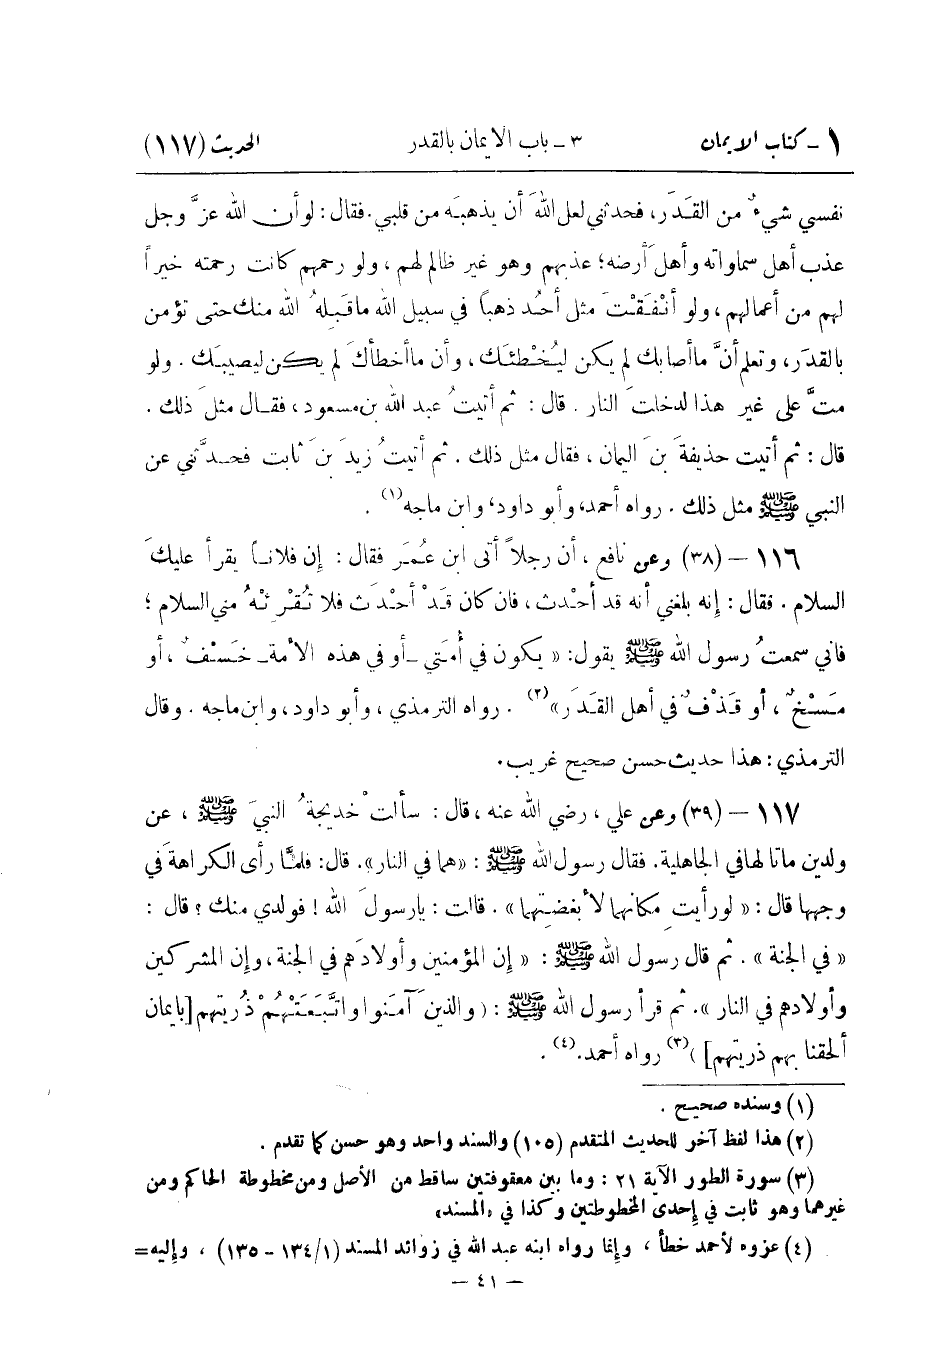 ١ - كتاب الايمان ٣ - باب الايمان بالقدر الحديث (١١٧)
نفسي شيءٌ من القَدَر، فحدثني لعل اللهَ أن يذهبَه من قلبي. فقال: لو أن الله عزَّ وجل
عذب أهل سماواته وأهل أرضه؛ عذبهم وهو غير ظالم لهم، ولو رحمهم كانت رحمته خيراً
لهم من أعمالهم، ولو أنْفَقْتَ مثل أحُد ذهباً في سبيل الله ما قَبِلهُ الله منك حتى تؤمن
بالقدَر، وتعلم أنَّ ما أصابك لم يكن ليُخْطئَك، وأن ما أخطأك لم يكن ليصيبَك. ولو
متَّ على غير هذا لدخلتَ النار. قال: ثم أتيتُ عبد الله بن مسعود، فقال مثلَ ذلك.
قال: ثم أتيت حذيفةَ بنَ اليمان، فقال مثل ذلك. ثم أتيتُ زيدَ بنَ ثابت فحدَّثني عن
النبي ﷺ مثل ذلك. رواه أحمد، وأبو داود، وابن ماجه(١).
١١٦ – (٣٨) وعن نافع، أن رجلاً أتى ابن عُمَر فقال: إن فلاناً يقرأ عليكَ
السلام. فقال: إنه بلغني أنه قد أحْدث، فان كان قَدْ أحْدَث فلا تُقْرِئْهُ مني السلام؛
فاني سمعتُ رسول الله ﷺ يقول: « يكون في أُمتي -أو في هذه الأمة- خَسْفٌ، أو
مَسْخٌ، أو قَذْفٌ في أهل القَدَر»(٢). رواه الترمذي، وأبو داود، وابن ماجه. وقال
الترمذي: هذا حديث حسن صحيح غريب.
١١٧ – (٣٩) وعن علي، رضي الله عنه، قال: سألتْ خديجةُ النبيَ ﷺ، عن
ولدين ماتا لها في الجاهلية. فقال رسول الله ﷺ: «هما في النار». قال: فلمَّا رأى الكراهةَ في
وجهها قال: « لو رأيتِ مكانهما لأبغضتِهما ». قالت: يا رسولَ الله! فولدي منك؟ قال:
« في الجنة ». ثم قال رسول الله ﷺ: « إن المؤمنين وأولادهم في الجنة، وإن المشركين
وأولادهم في النار ». ثم قرأ رسول الله ﷺ: (والذينَ آمَنوا واتَّبَعَتْهُمْ ذُريتهم [بايمان
ألحقنا بهم ذريتهم])(٣) رواه أحمد.(٤).
(١) وسنده صحيح.
(٢) هذا لفظ آخر للحديث المتقدم (١٠٥) والسند واحد وهو حسن كما تقدم.
(٣) سورة الطور الآية ٢١: وما بين معقوفتين ساقط من الأصل ومن مخطوطة الحاكم ومن
غيرهما وهو ثابت في إحدى المخطوطتين وكذا في «المسند»
(٤) عزوه لأحمد خطأ، وإنما رواه ابنه عبد الله في زوائد المسند (١/١٣٤ - ١٣٥)، وإليه=
– ٤١ –